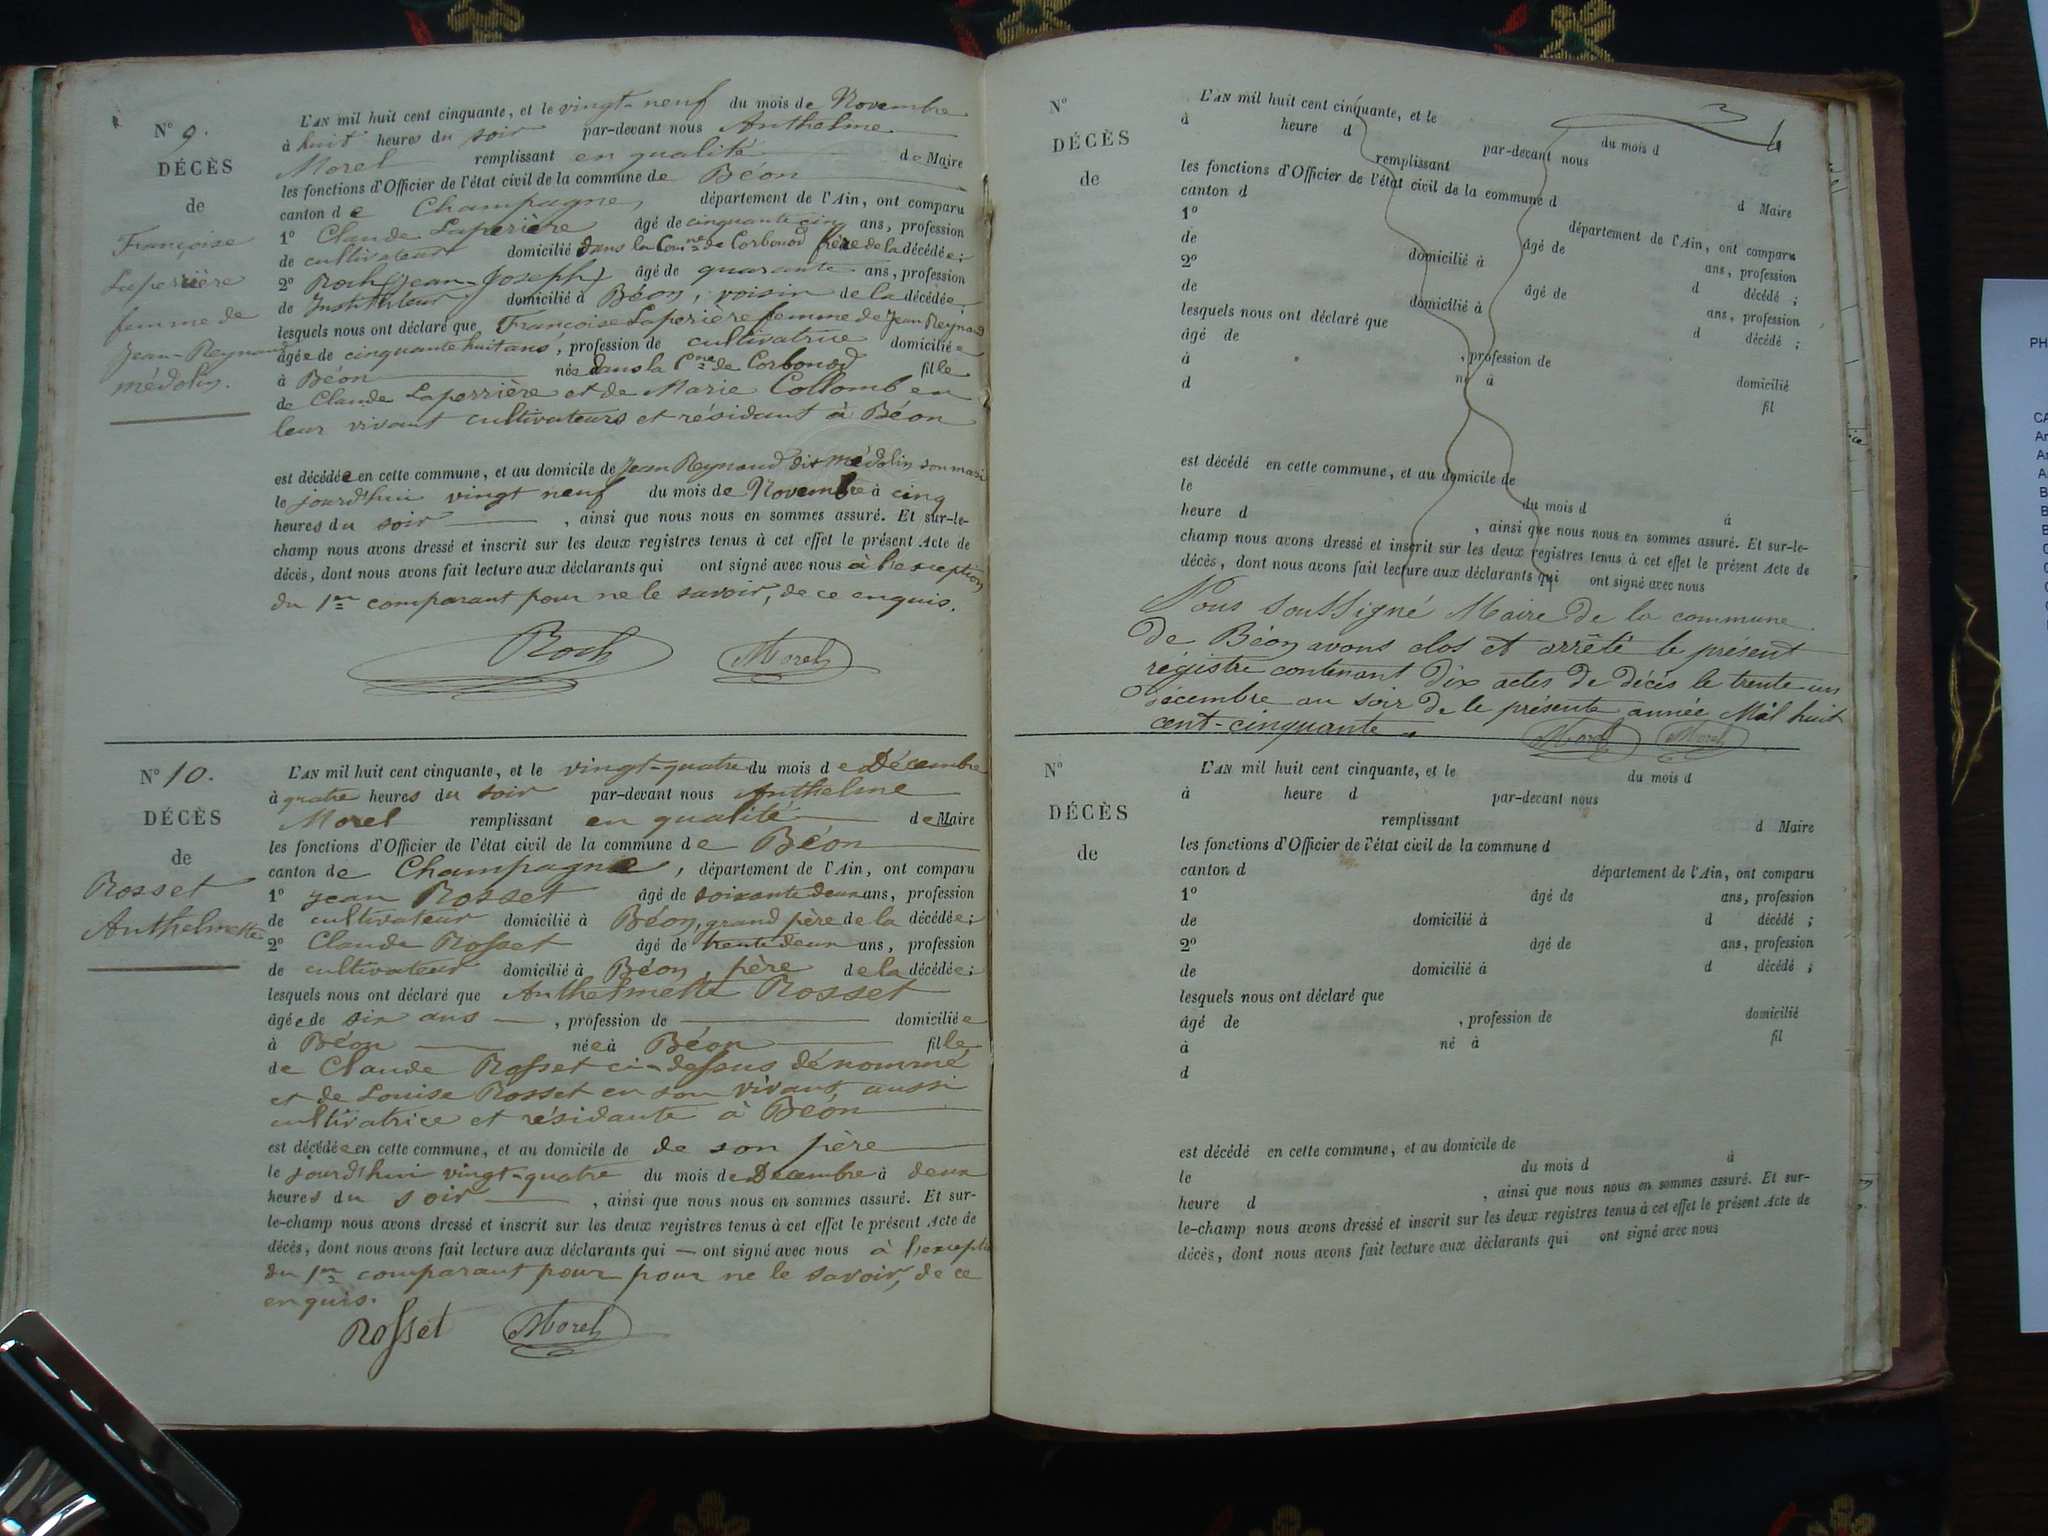 N° 9.
DÉCÈS
de
Françoise
Laperrière
femme de
Jean-Reynaud
médolin.
L'AN mil huit cent cinquante, et le vingt-neuf du mois de Novembre
à huit heures du soir par-devant nous Anthelme
Morel remplissant en qualité de Maire
les fonctions d'Officier de l'état civil de la commune de Béon
canton de Champagne, département de l'Ain, ont comparu
1° Claude Laperière âgé de cinquante cinq ans, profession
de cultivateur domicilié dans la Comne de Corbonod frère de la décédée;
2° Roch (Jean-Joseph) âgé de quarante ans, profession
de Instituteur domicilié à Béon, voisin de la décédée;
lesquels nous ont déclaré que Françoise Laperière femme de Jean Reynaud
âgée de cinquante huit ans, profession de cultivatrice domiciliée
à Béon née dans la Cne de Corbonod fille
de Claude Laperrière et de Marie Collomb en
leur vivant cultivateurs et résidant à Béon
est décédée en cette commune, et au domicile de Jean Reynaud dit médolin son mari
le jourd'hui vingt neuf du mois de Novembre à cinq
heures du soir, ainsi que nous nous en sommes assuré. Et sur-le-
champ nous avons dressé et inscrit sur les deux registres tenus à cet effet le présent Acte de
décès, dont nous avons fait lecture aux déclarants qui ont signé avec nous à l'exception
du 1er comparant pour ne le savoir, de ce enquis.
Roch Morel
N° 10.
DÉCÈS
de
Rosset
Anthelmette
L'AN mil huit cent cinquante, et le vingt-quatre du mois de Décembre
à quatre heures du soir par-devant nous Anthelme
Morel remplissant en qualité de Maire
les fonctions d'Officier de l'état civil de la commune de Béon
canton de Champagne, département de l'Ain, ont comparu
1° Jean Rosset âgé de soixante deux ans, profession
de cultivateur domicilié à Béon, grand père de la décédée;
2° Claude Rosset âgé de trente deux ans, profession
de cultivateur domicilié à Béon, père de la décédée;
lesquels nous ont déclaré que Anthelmette Rosset
âgée de six ans, profession de domiciliée
à Béon née à Béon fille
de Claude Rosset ci-dessus dénommé
et de Louise Rosset en son vivant, aussi
cultivatrice et résidante à Béon
est décédée en cette commune, et au domicile de de son père
le jourd'hui vingt-quatre du mois de Décembre à deux
heures du soir, ainsi que nous nous en sommes assuré. Et sur-
le-champ nous avons dressé et inscrit sur les deux registres tenus à cet effet le présent Acte de
décès, dont nous avons fait lecture aux déclarants qui — ont signé avec nous à l'excepti
du 1er comparant pour pour ne le savoir, de ce
enquis.
Rosset Morel
N°
DÉCÈS
de
L'AN mil huit cent cinquante, et le du mois d
à heure d par-devant nous
remplissant d Maire
les fonctions d'Officier de l'état civil de la commune d
canton d département de l'Ain, ont comparu
1° âgé de ans, profession
de domicilié à d décédé ;
2° âgé de ans, profession
de domicilié à d décédé ;
lesquels nous ont déclaré que
âgé de , profession de domicilié
à né à fil
d
est décédé en cette commune, et au domicile de
le du mois d à
heure d , ainsi que nous nous en sommes assuré. Et sur-le-
champ nous avons dressé et inscrit sur les deux registres tenus à cet effet le présent Acte de
décès, dont nous avons fait lecture aux déclarants qui ont signé avec nous
Nous soussigné Maire de la commune
de Béon avons clos et arrêté le présent
régistre contenant dix actes de décès le trente un
Décembre au soir de le présente année Mil huit
cent-cinquante.
Morel Morel
N°
DÉCÈS
de
L'AN mil huit cent cinquante, et le du mois d
à heure d par-devant nous
remplissant d Maire
les fonctions d'Officier de l'état civil de la commune d
canton d département de l'Ain, ont comparu
1° âgé de ans, profession
de domicilié à d décédé ;
2° âgé de ans, profession
de domicilié à d décédé ;
lesquels nous ont déclaré que
âgé de , profession de domicilié
à né à fil
d
est décédé en cette commune, et au domicile de
le du mois d à
heure d , ainsi que nous nous en sommes assuré. Et sur-
le-champ nous avons dressé et inscrit sur les deux registres tenus à cet effet le présent Acte de
décès, dont nous avons fait lecture aux déclarants qui ont signé avec nous
PH
CA